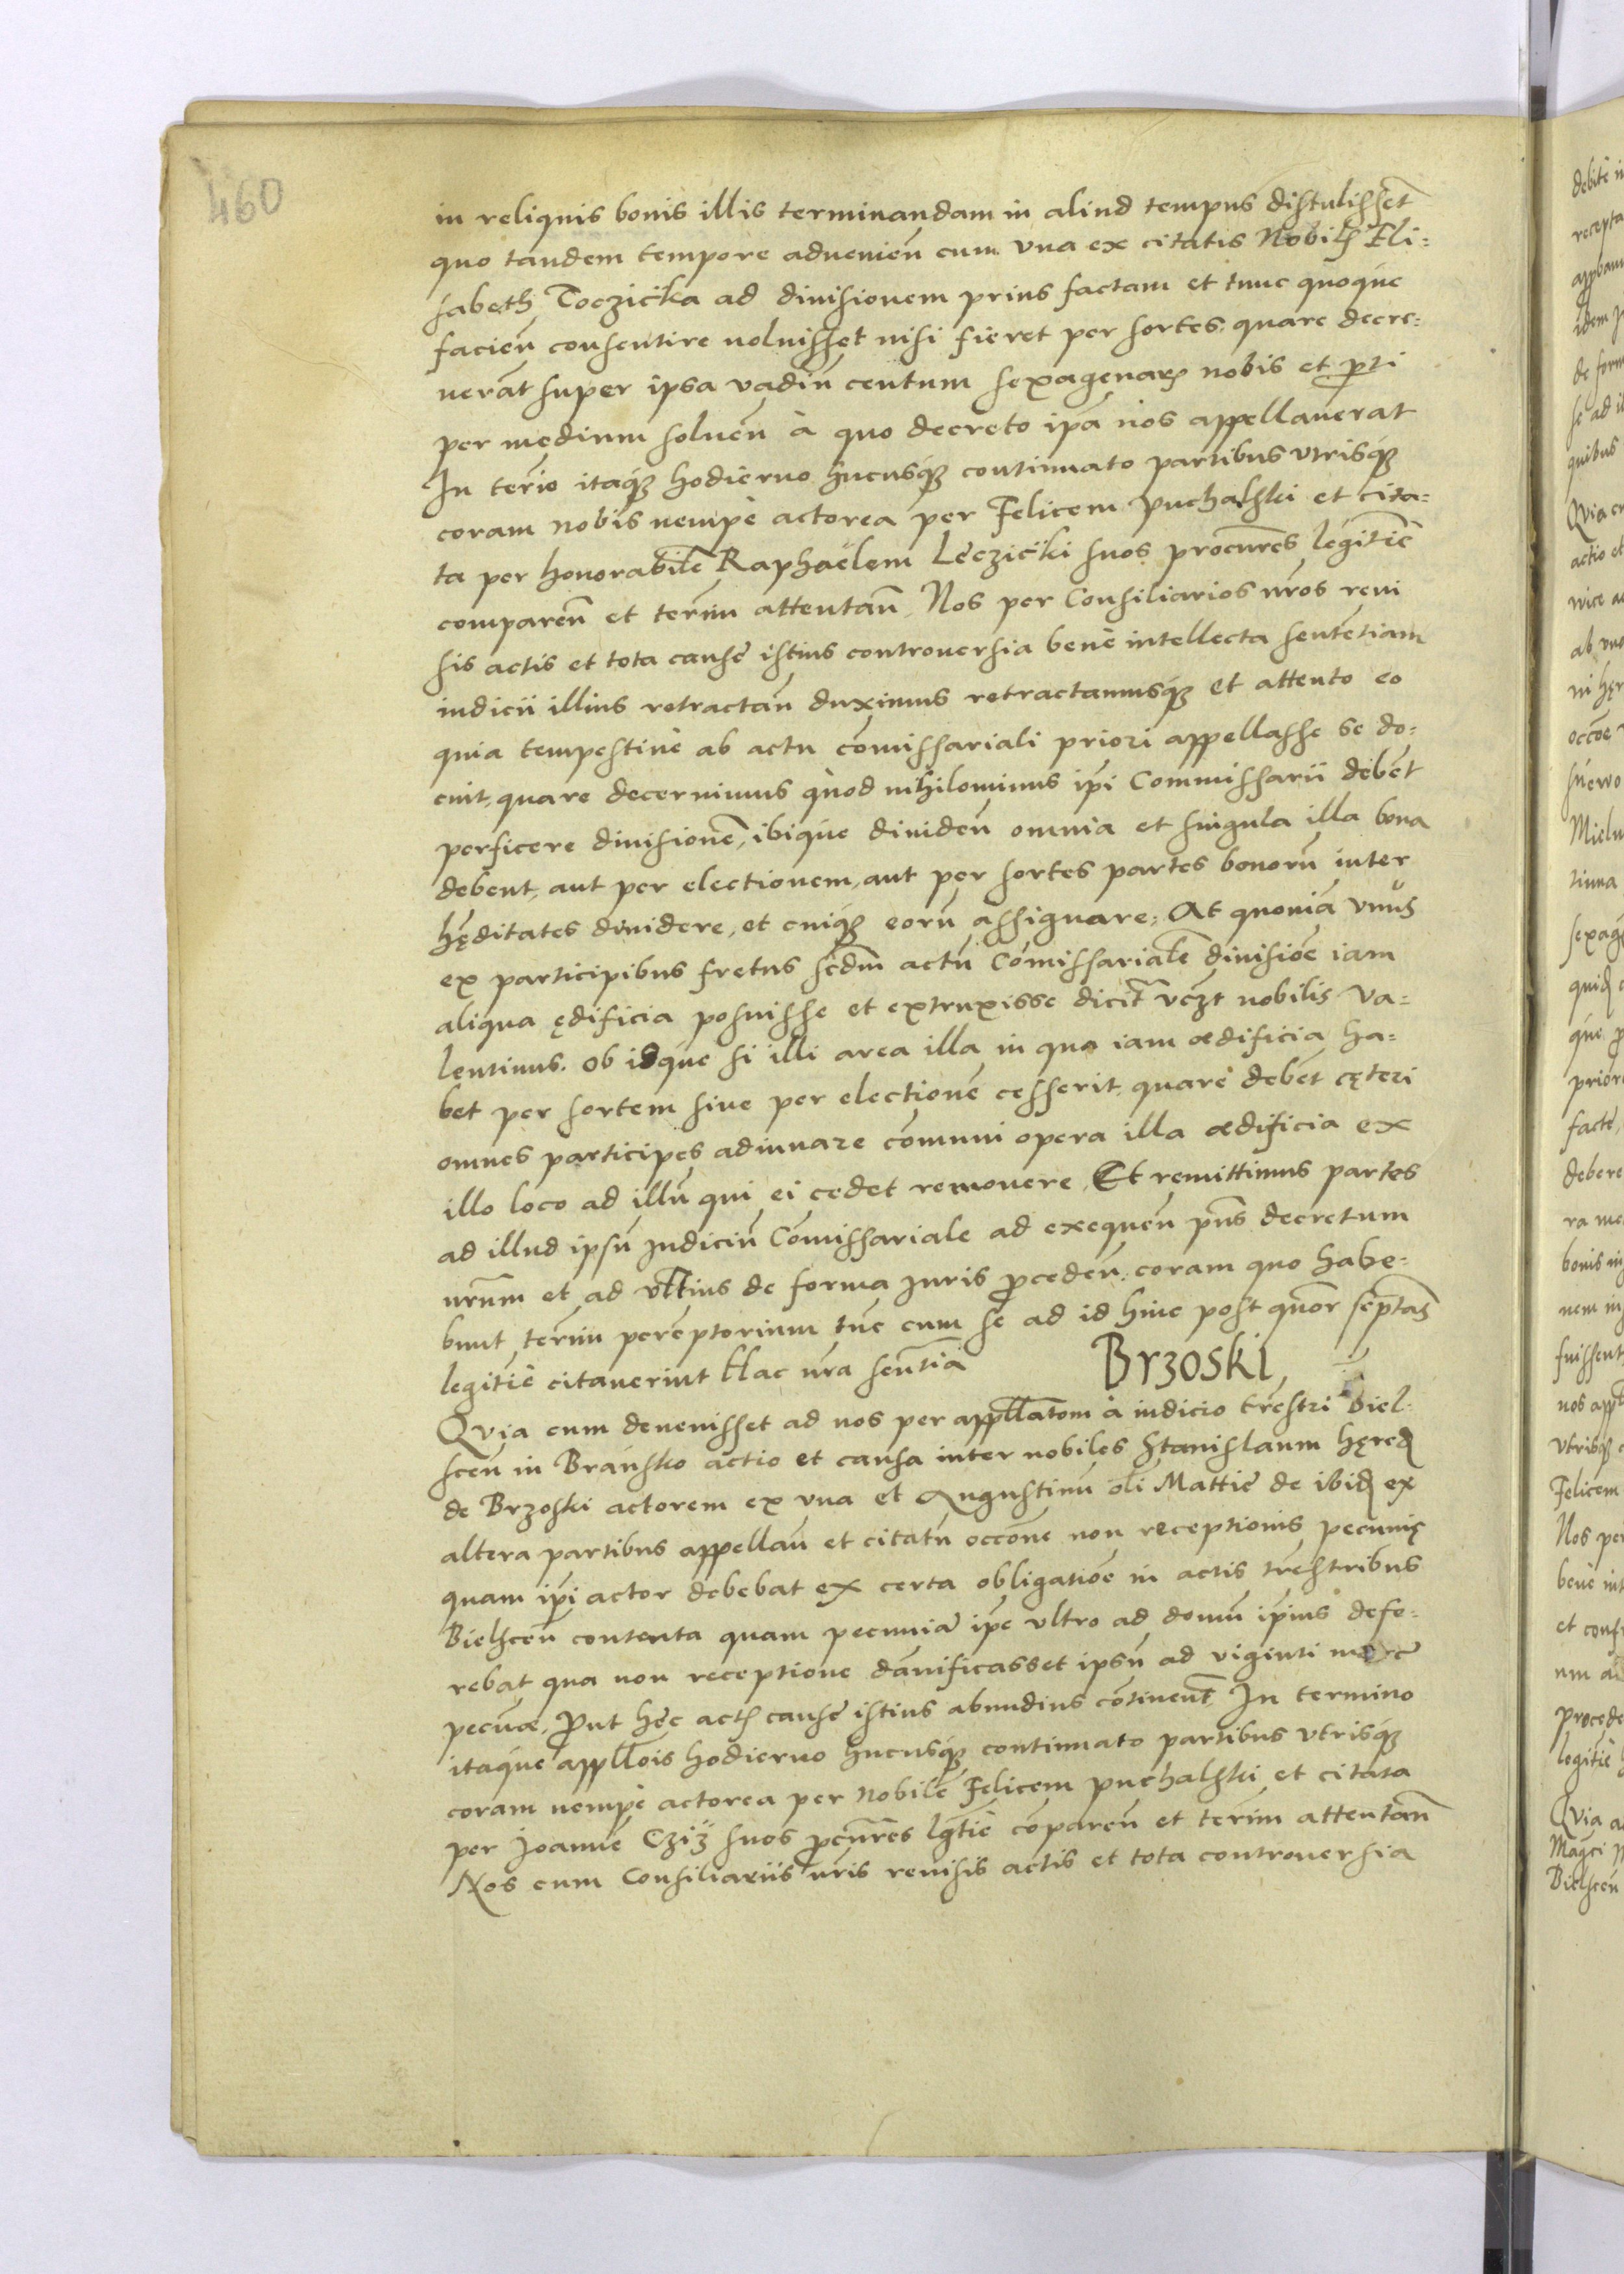 460
in reliquis bonis illis terminandam in aliud tempus distulisset
quo tandem tempore advenien̄ cum una ex citatis Nobil̄ Eli=
sabeth Toczicka ad divisionem prius factam et tunc quoque
facien̄ consentire noluisset nisi fieret per sortes. quare decre=
verāt super ipsa vadiū centum sexagenarꝝ nobis et p̄ti
per medium solven̄ à quo decreto ip̄a nos appellaverat
In ter̄io itaqꝫ hodierno hucusqꝫ continuato partibus utrisqꝫ
coram nobis nempe actorea per Felicem Puchalski et cita=
ta per honorabilē Raphaëlem Leczicki suos procur̄es legitimē
comparen̄ et ter̄im attentan̄. Nos per Consiliarios nr̄os revi
sis actis et tota causę istius controversia bene intellecta sententiam
iudicii illius retractan̄ duximus retractamusqꝫ et attento eo
quia tempestivè ab actu com̄issariali priori appellasse se do=
cuit, quare decernimus quod nihilominus ip̄i Commissarii debēt
perficere divisionē, ibique dividen̄ omnia et singula illa bona
debent, aut per electionem, aut per sortes partes bonorū inter
hęditates dividere, et cuiqꝫ eorū assignare. At quoniā unus
ex participibus fretus scdm̄ actū Com̄issarialē divisiōe iam
aliqua ędificia posuisse et extruxisse dicit̄ vcꝫt nobilis Va=
lentinus. Ob idque si illi area illa in qua iam ædificia ha=
bet per sortem sive per electionē cesserit, quare debēt cęteri
omnes participes adiuvare com̄uni opera illa ædificia ex
illo loco ad illū qui ei cedet removere. Et remittimus partes
ad illud ipsū Iudiciū Com̄issariale ad exequen̄ pn̄s decretum
nr̄um et ad ult̄ius de forma Iuris p̄ceden̄. coram quo habe=
bunt ter̄im peremptorium tūc cum se ad id hinc post quor̄ septas̄
legitimè citaverint Hac nr̄a sen̄tia
Brzoski
Quia cum devenisset ad nos per appll̄atom̄ à iudicio tr̄estri Biel=
scen̄ in Bransko actio et causa inter nobiles Stanislaum hęred̄
de Brzoski actorem ex una et Augustinū oli Mattię de ibid̄ ex
altera partibus appellan̄ et citatū occōne non receptionis pecunię
quam ip̄i actor debebat ex certa obligatiōe in actis tr̄estribus
Bielscen̄ contenta quam pecuniā ip̄e ultro ad domū ip̄ius defe=
rebat qua non receptione dam̄ificasset ipsū ad viginti marc̄
pecuniæ. Prut hęc act̄ causę istius abundius continent̄. In termino
itaque appll̄ois hodierno hucusqꝫ continuato partibus utrisqꝫ
coram nempe actorea per Nobilē Felicem Puchalski et citata
per Joannē Cziż suos p̄cur̄es lḡtiē comparen̄ et ter̄im attentan̄
Nos cum Consiliariis nr̄is revisis actis et tota controversia